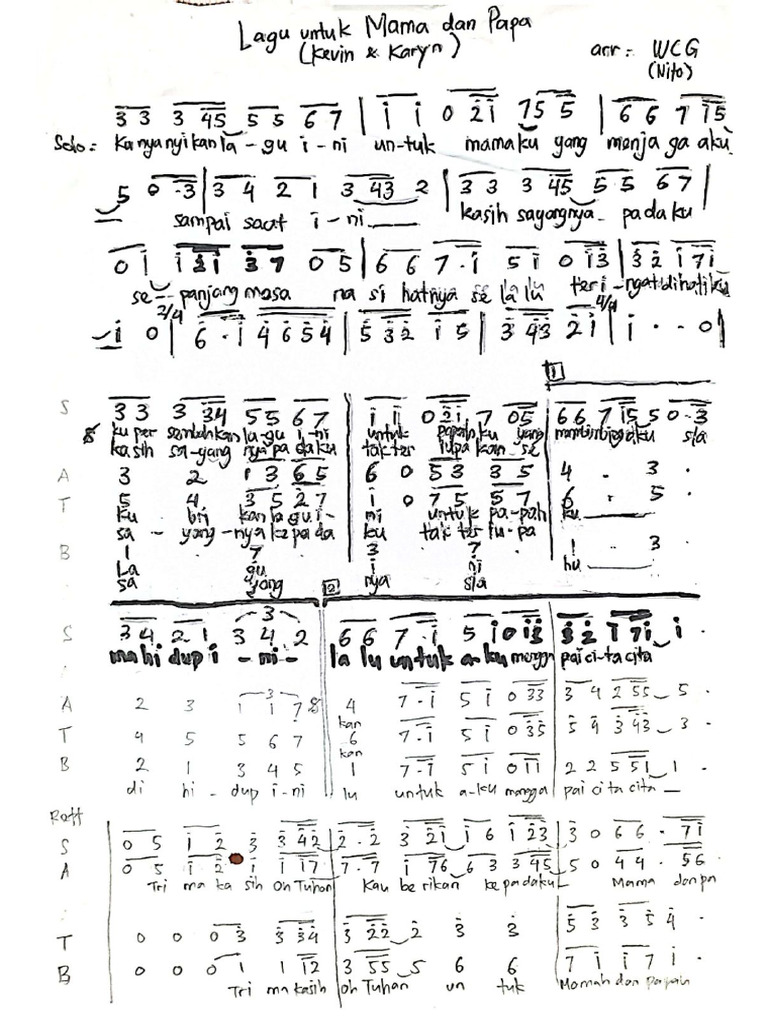 Lagu untuk Mama dan Papa
(Kevin & Karyn)
arr : WCG
(Nito)
3 3 3 45 5 5 6 7 | i i 0 2i 75 5 | 6 6 7 i5
Solo : Kanyanyikan la - gu i - ni un-tuk mamaku yang menja ga aku
5 0 · 3 | 3 4 2 1 3 43 2 | 3 3 3 45 5 5 6 7 |
sampai saat i - ni kasih sayangnya - padaku
0 i i 2i 3 7 0 5 | 6 6 7 · i 5 i 0 i3 | 3 2 i 7i
se - panjang masa na si hatnya se la lu teri - ngat dihatiku
2/4 4/4
i 0 | 6 · i 4 6 5 4 | 5 32 i 5 | 3 43 2i | i · · 0 |
1
S 3 3 3 34 5 5 6 7 i i 0 2i 7 05 6 6 7 i5 5 0 · 3
ku per sembahkan la - gu i - ni untuk papahku yang membimbingaku sla
kasih sa - yang nya padaku tak ter lupa kan - se
A 3 2 1 3 6 5 6 0 5 3 3 5 4 · 3 ·
T 5 4 3 5 2 7 i 0 7 5 5 7 6 · 5 ·
ku bri kan la gu i - ni untuk pa - pah ku
sa - yang - nya kepada ku tak ter lu - pa
B 1 7 · 3 7 · 1 3
La gu nya ni hu
sa yang nya sla
2
3
S 3 4 2 1 3 4 2 6 6 7 · i 5 i 0 i3 3 2 i 7i i
ma hi dup i - ni - la lu untuk a - ku mengga pai ci - ta cita
3
A 2 3 1 1 7 4 7 · i 5 i 0 33 3 4 2 55 5 ·
kan
T 4 5 5 6 7 6 7 · i 5 i 0 35 5 4 3 43 3 ·
kan
B 2 1 3 4 5 1 7 · i 5 i 0 ii 2 2 5 51 1 ·
di hi - dup i - ni lu untuk a - ku mengga pai ci ta cita
Reff
S 0 5 i 2 3 3 42 2 · 2 3 2i i 6 i 23 3 0 6 6 · 7i
A 0 5 i 2 i i 17 7 · 7 i 76 6 3 3 45 5 0 4 4 · 56
Tri ma ka sih Oh Tuhan Kau be rikan ke padaku Mama dan pa
T 0 0 0 3 3 34 3 22 2 3 3 5 3 3 5 4 ·
B 0 0 0 1 1 12 3 55 5 6 6 7 i i 7 i ·
Tri ma kasih oh Tuhan un tuk Mamah dan Papah